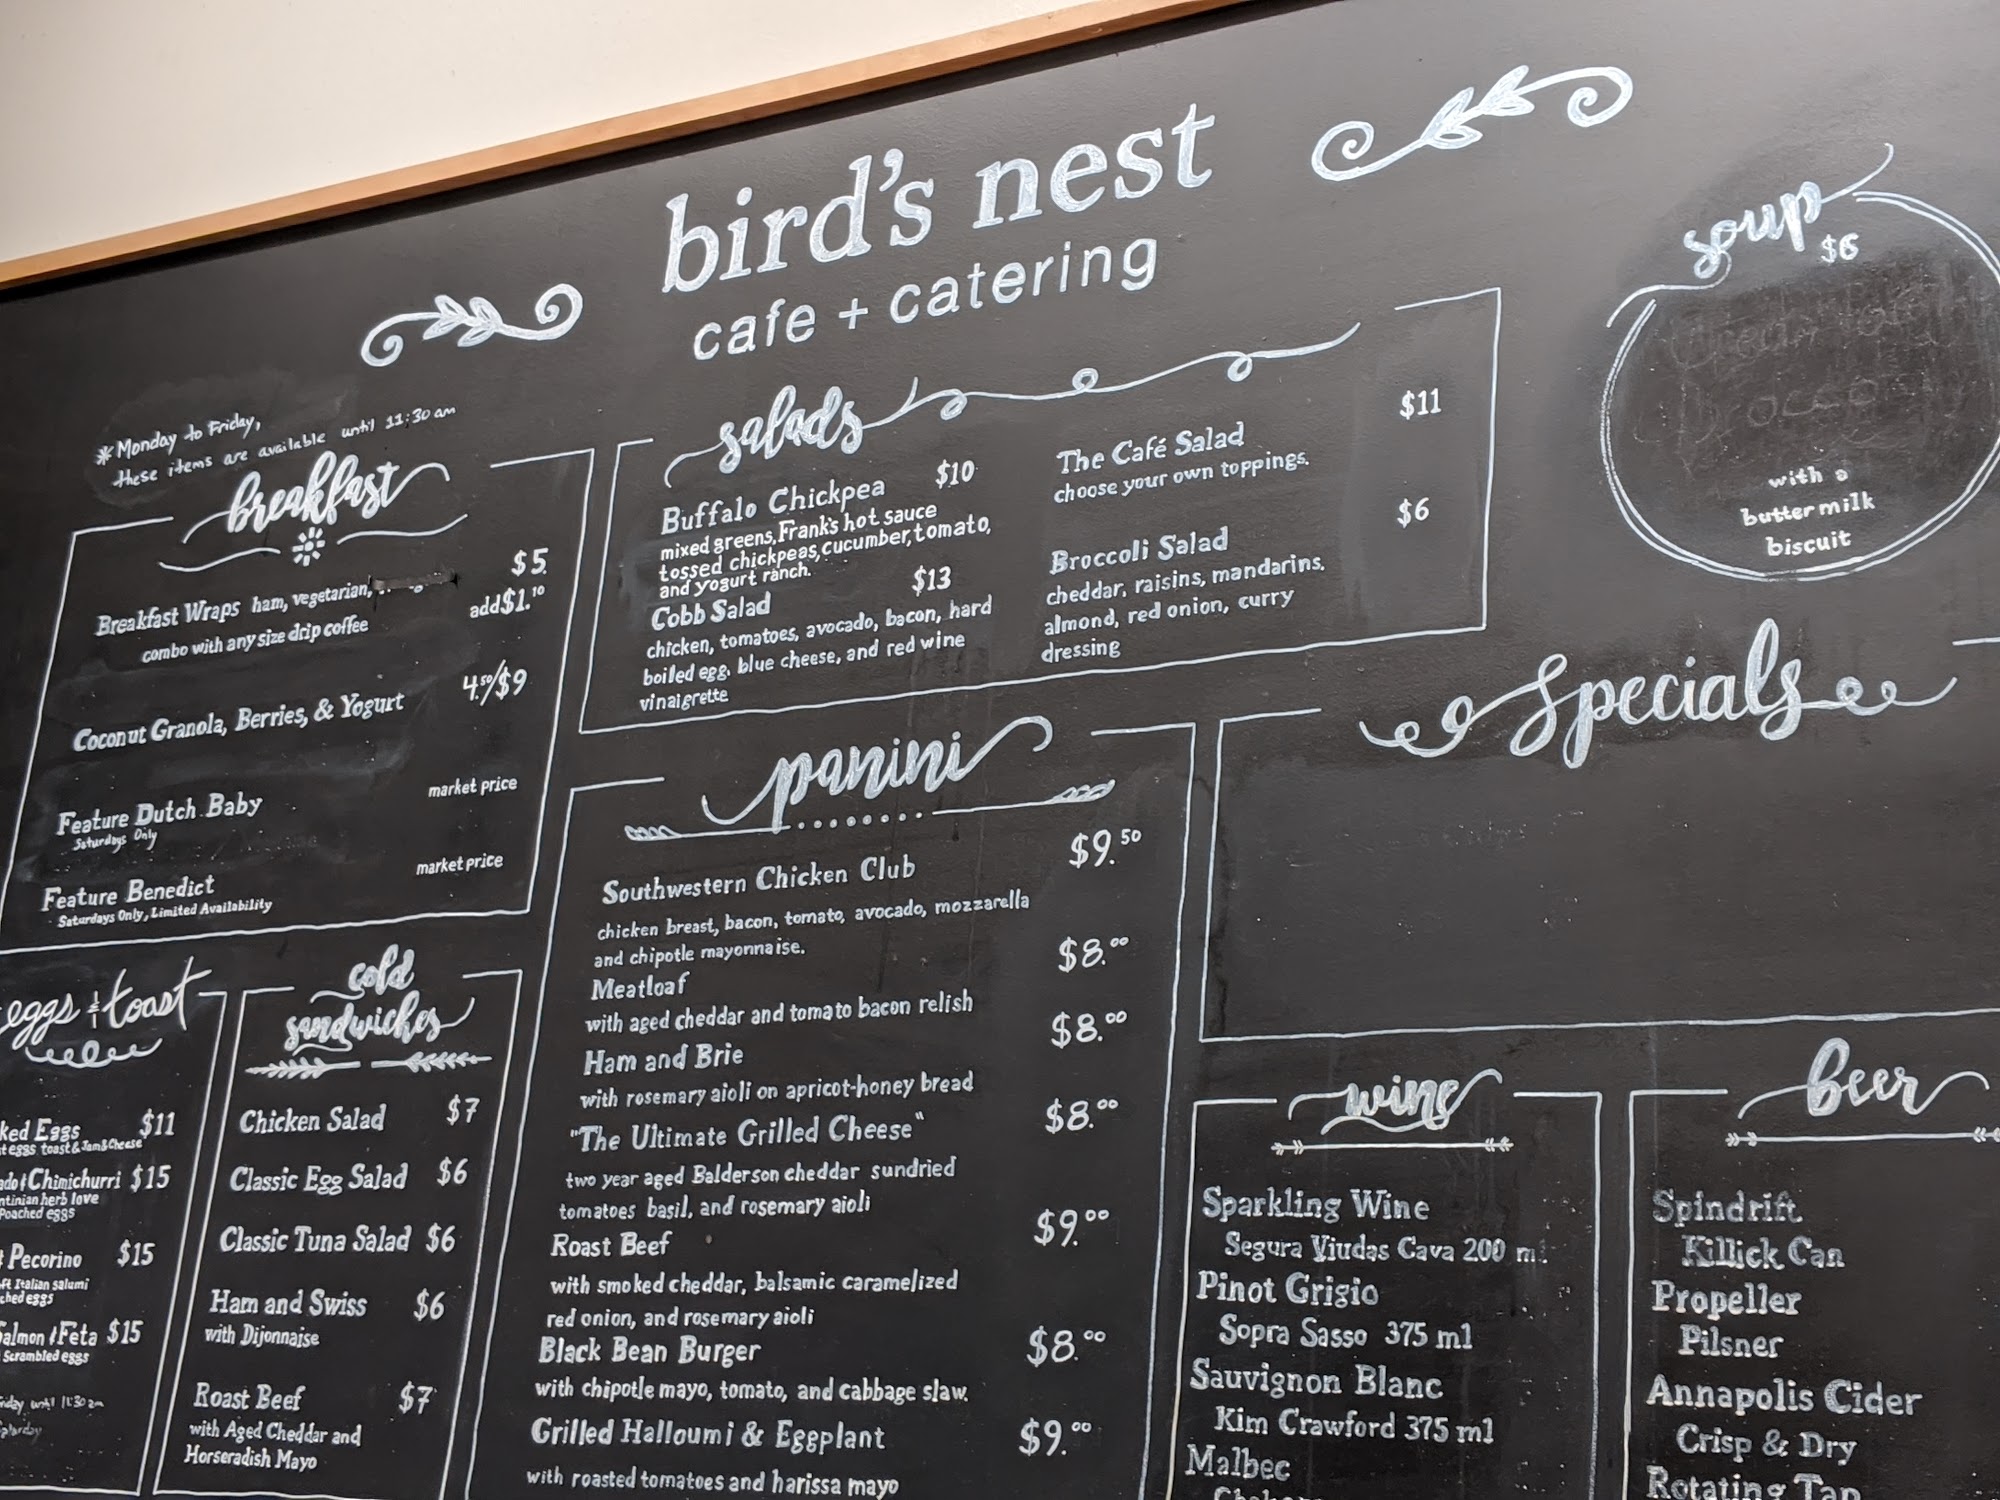 bird's nest
cafe + catering
*Monday to Friday,
these items are available until 11:30 am
breakfast
Breakfast Wraps ham, vegetarian, $5.
combo with any size drip coffee add $1.10
Coconut Granola, Berries, & Yogurt 4.50/$9
Feature Dutch Baby market price
Saturdays Only
Feature Benedict market price
Saturdays Only, Limited Availability
salads
Buffalo Chickpea $10
mixed greens, Frank's hot sauce
tossed chickpeas, cucumber, tomato,
and yogurt ranch.
Cobb Salad $13
chicken, tomatoes, avocado, bacon, hard
boiled egg, blue cheese, and red wine
vinaigrette
The Café Salad $11
choose your own toppings.
Broccoli Salad $6
cheddar, raisins, mandarins,
almond, red onion, curry
dressing
soup
$6
with a
buttermilk
biscuit
Specials
eggs & toast
ked Eggs $11
t eggs toast & Jam & Cheese
ado & Chimichurri $15
ntinian herb love
Poached eggs
& Pecorino $15
ft Italian salumi
ched eggs
almon & Feta $15
Scrambled eggs
riday until 11:30 am
aturday
cold
sandwiches
Chicken Salad $7
Classic Egg Salad $6
Classic Tuna Salad $6
Ham and Swiss $6
with Dijonnaise
Roast Beef $7
with Aged Cheddar and
Horseradish Mayo
panini
Southwestern Chicken Club $9.50
chicken breast, bacon, tomato, avocado, mozzarella
and chipotle mayonnaise.
Meatloaf $8.00
with aged cheddar and tomato bacon relish
Ham and Brie $8.00
with rosemary aioli on apricot-honey bread
"The Ultimate Grilled Cheese" $8.00
two year aged Balderson cheddar sundried
tomatoes basil, and rosemary aioli
Roast Beef $9.00
with smoked cheddar, balsamic caramelized
red onion, and rosemary aioli
Black Bean Burger $8.00
with chipotle mayo, tomato, and cabbage slaw.
Grilled Halloumi & Eggplant $9.00
with roasted tomatoes and harissa mayo
wine
Sparkling Wine
Segura Viudas Cava 200 ml
Pinot Grigio
Sopra Sasso 375 ml
Sauvignon Blanc
Kim Crawford 375 ml
Malbec
beer
Spindrift
Killick Can
Propeller
Pilsner
Annapolis Cider
Crisp & Dry
Rotating Tap